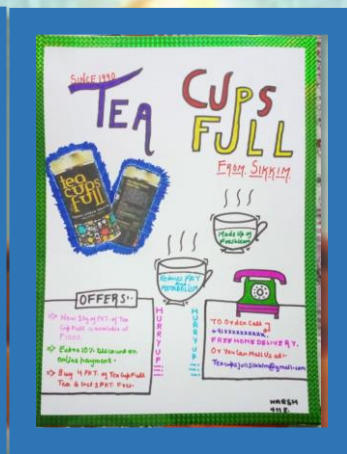 SINCE 1990
TEA CUPS FULL
FROM SIKKIM
tea
cups
full
Made Up of
Freshness
Reduces FAT
And
METABOLISM
OFFERS:-
Now PKT. of Tea
Cup Full is available at
Extra 10% discount on
online payment.
Buy 4 PKT. of Tea Cup Full
Tea & Get 1 PKT. Free.
HURRY UP!!!
HURRY UP!!!
TO Order Call
+91XXXXXXXXXX.
FREE HOME DELIVERY.
Or You Can Mail Us at:-
HARSH